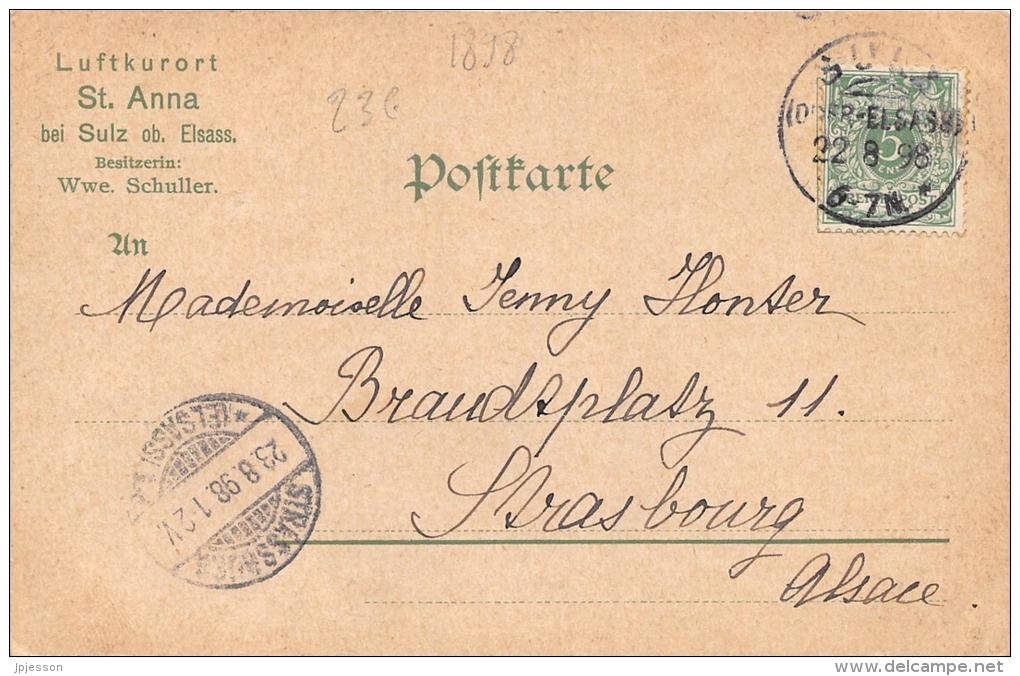 1898
236
Luftkurort
St. Anna
bei Sulz ob. Elsass.
Besitzerin:
Wwe. Schuller.
Postkarte
SULZ
(OBER-ELSASS)
22 8 98
6-7N.*
5
An
Mademoiselle Jenny Honser
Brandsplatz 11.
Strasbourg
Alsace.
* (ELSASS)
23.8.98.1-2V.
STRASSBURG
jpjesson
www.delcampe.net